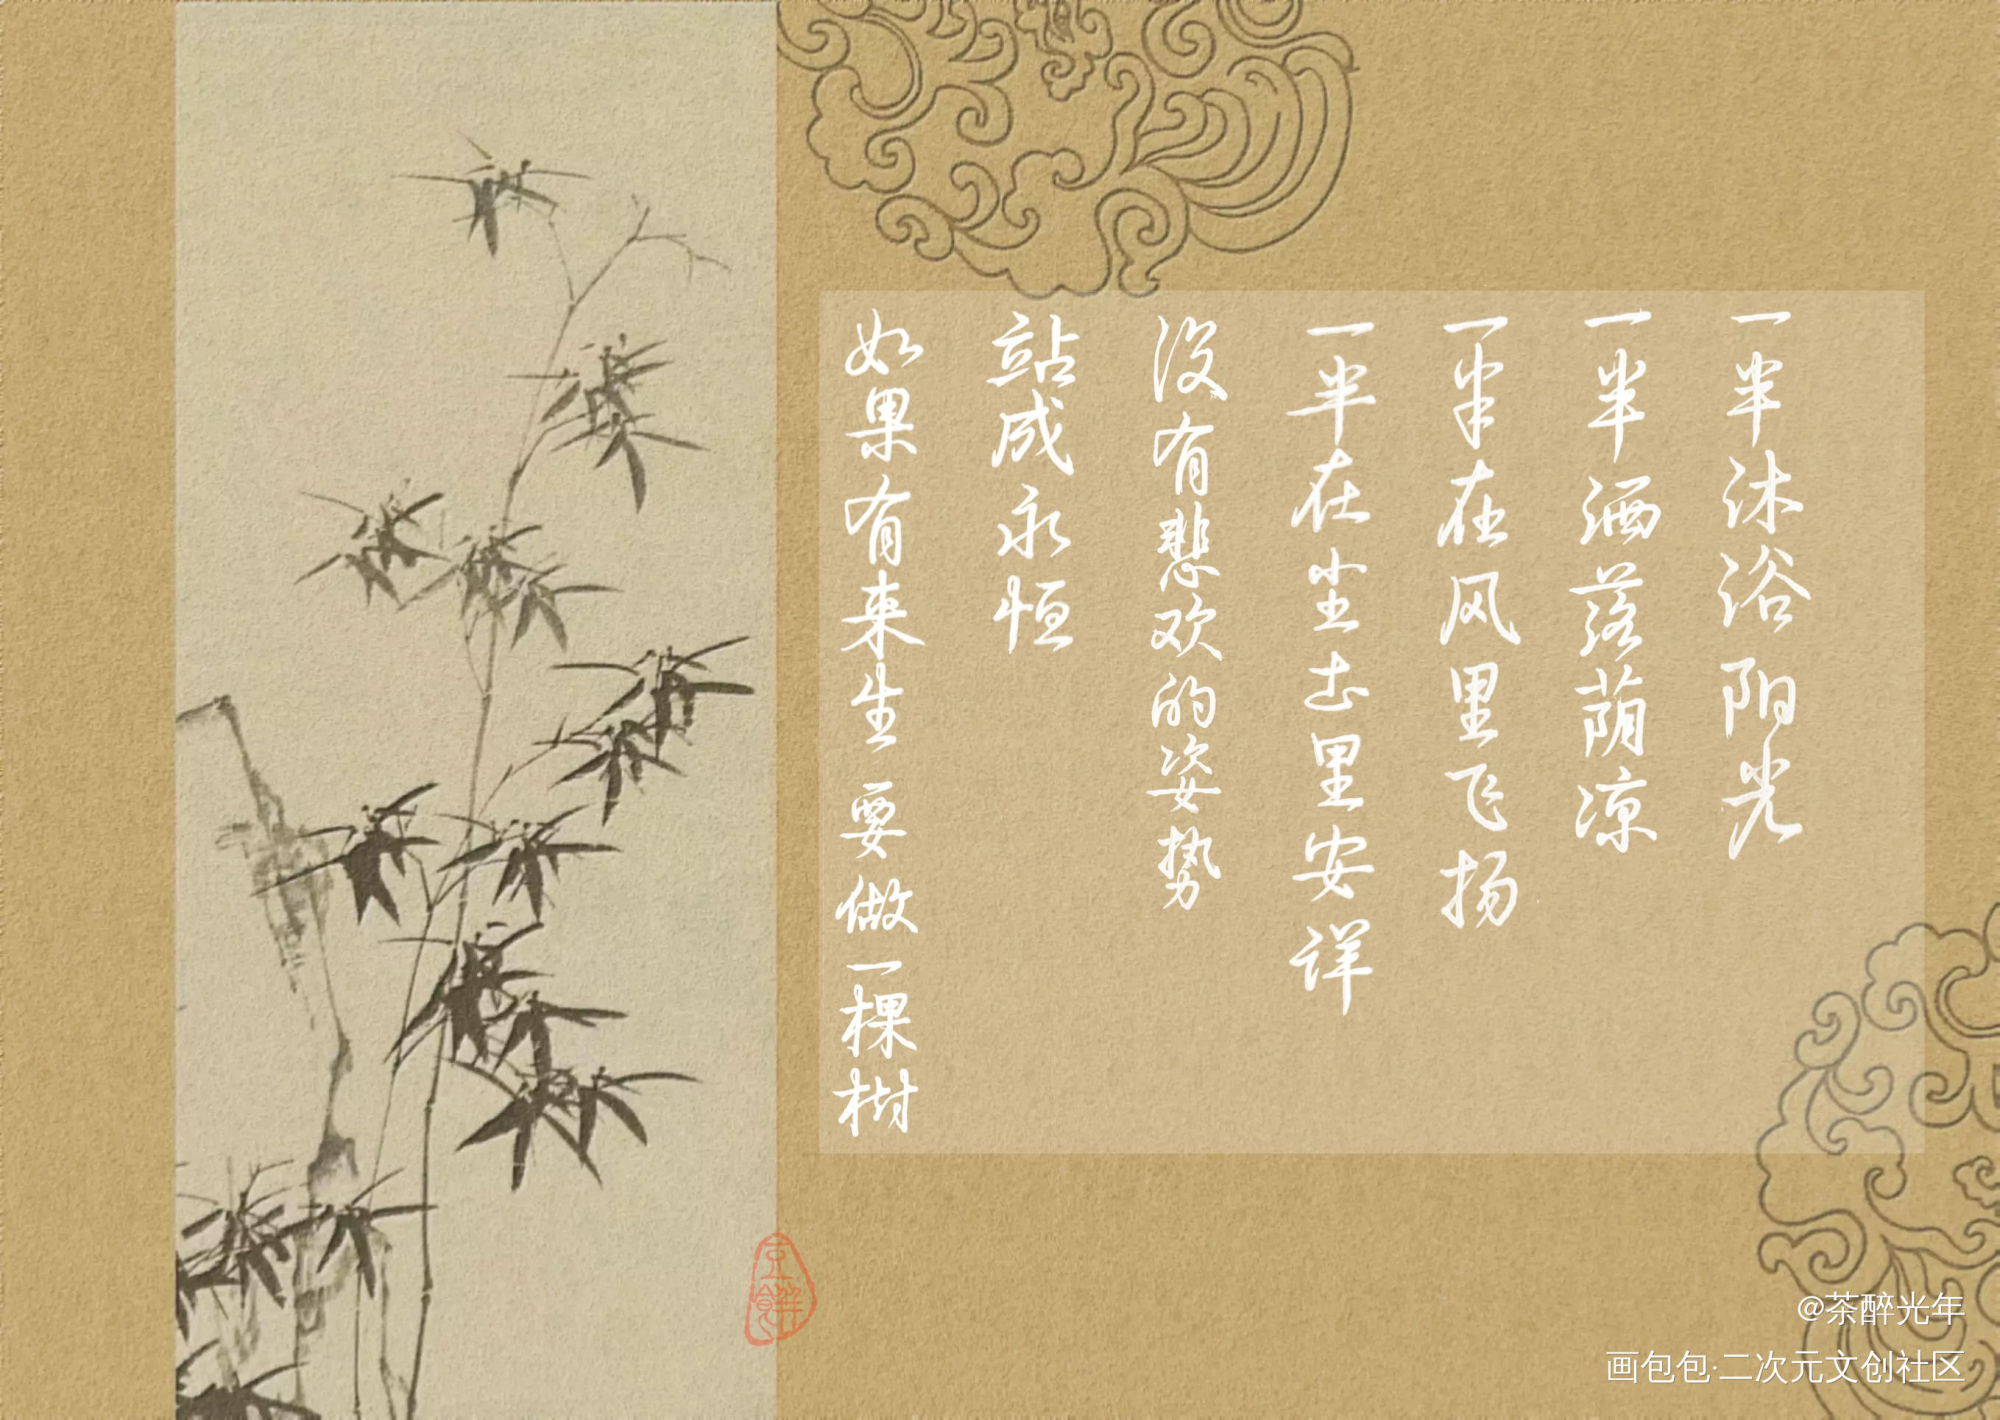 如果有来生 要做一棵树
站成永恒
没有悲欢的姿势
一半在尘土里安详
一半在风里飞扬
一半洒落荫凉
一半沐浴阳光
@茶醉光年
画包包·二次元文创社区